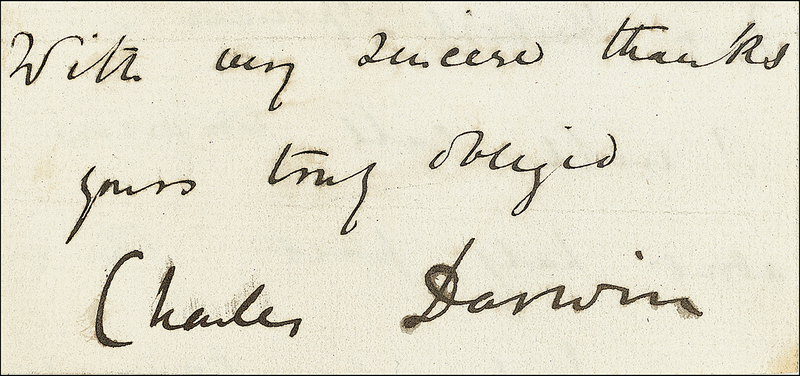 With my sincere thanks
yours truly obliged
Charles Darwin